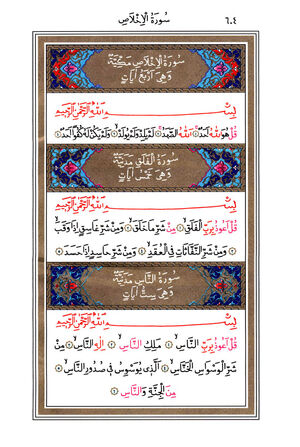 ٦٠٤ سُورَةُ الْإِخْلَاصِ
سُورَةُ الْإِخْلَاصِ مَكِّيَّةٌ
وَهِيَ أَرْبَعُ آيَاتٍ
بِسْمِ اللَّهِ الرَّحْمَٰنِ الرَّحِيمِ
قُلْ هُوَ اللَّهُ أَحَدٌ ۝١ اللَّهُ الصَّمَدُ ۝٢ لَمْ يَلِدْ وَلَمْ يُولَدْ ۝٣ وَلَمْ يَكُنْ لَهُ كُفُوًا أَحَدٌ ۝٤
سُورَةُ الْفَلَقِ مَدَنِيَّةٌ
وَهِيَ خَمْسُ آيَاتٍ
بِسْمِ اللَّهِ الرَّحْمَٰنِ الرَّحِيمِ
قُلْ أَعُوذُ بِرَبِّ الْفَلَقِ ۝١ مِنْ شَرِّ مَا خَلَقَ ۝٢ وَمِنْ شَرِّ غَاسِقٍ إِذَا وَقَبَ
۝٣ وَمِنْ شَرِّ النَّفَّاثَاتِ فِي الْعُقَدِ ۝٤ وَمِنْ شَرِّ حَاسِدٍ إِذَا حَسَدَ ۝٥
سُورَةُ النَّاسِ مَدَنِيَّةٌ
وَهِيَ سِتُّ آيَاتٍ
بِسْمِ اللَّهِ الرَّحْمَٰنِ الرَّحِيمِ
قُلْ أَعُوذُ بِرَبِّ النَّاسِ ۝١ مَلِكِ النَّاسِ ۝٢ إِلَٰهِ النَّاسِ ۝٣ مِنْ
شَرِّ الْوَسْوَاسِ الْخَنَّاسِ ۝٤ الَّذِي يُوَسْوِسُ فِي صُدُورِ النَّاسِ ۝٥
مِنَ الْجِنَّةِ وَالنَّاسِ ۝٦